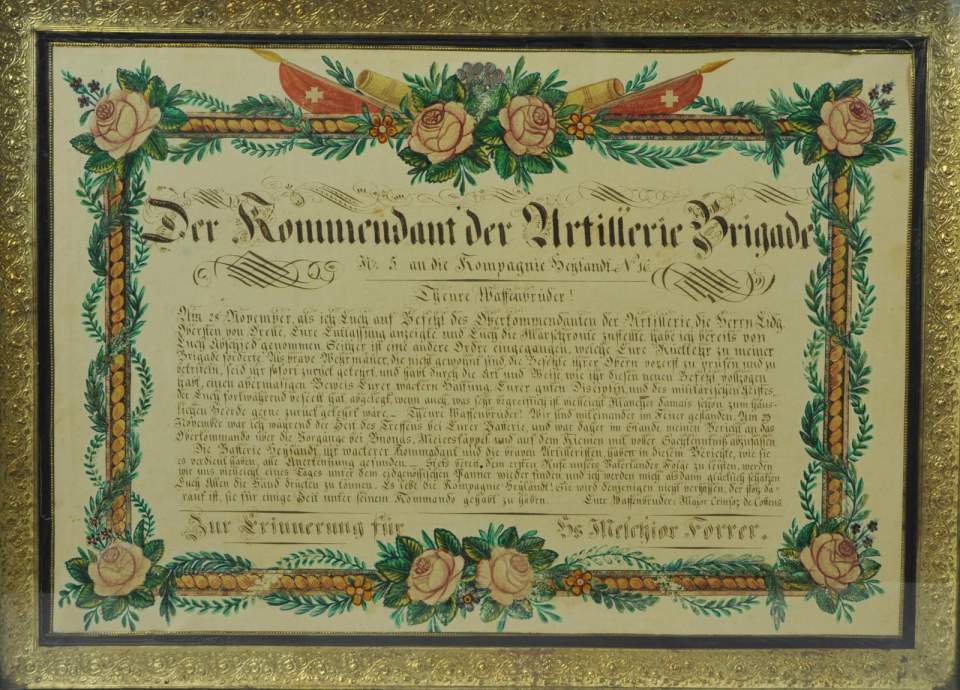 Der Kommendant der Artillerie Brigade
Nº. 5 an die Kompagnie Heylandt Nº 16
Theure Waffenbrüder!
Am 28 November, als ich Euch auf Befehl des Oberkommandanten der Artillerie, die Herrn Eidg.
Obersten von Orelle, Eure Entlassung anzeigte und Euch die Marschroute zustellte, habe ich bereits von
Euch Abschied genommen Seither ist eine andere Ordre eingegangen, welche Eure Rückkehr zu meiner
Brigade forderte. Als brave Wehrmäner, die nicht gewohnt sind, die Befehle ihrer Obern vorerst zu prüfen und zu
seid ihr sofort zurück gekehrt, und habt durch die Art und Weise wie ihr diesen neuen Befehl vollzogen
habt, einen abermaligen Beweis Eurer wackern Haltung Eurer guten Disciplin und des militärischen Geistes,
der Euch fortwährend beseelt hat, abgelegt, wenn auch, was sehr begreiflich ist, vielleicht Mancher damals schon zum häus-
lichen Heerde gerne zurück gekehrt wäre. – Theure Waffenbrüder! Wir sind miteinander im Feuer gestanden. Am 23
November war ich während der Zeit des Treffens bei Eurer Batterie, und war daher im Stande meinen Bericht an das
Oberkommando über die Vorgänge bei Buonas, Meierskappel und auf dem Kiemen mit voller Sachkenntniß abzufassen.
Die Batterie Heylandt, ihr wackerer Kommadant und die braven Artilleristen, haben in diesem Berichte, wie sie
es verdient haben, alle Anerkennung gefunden. – Stets bereit, dem ersten Rufe unsers Vaterlandes Folge zu leisten, werden
wir uns vielleicht eines Tages unter dem eidgenößischen Panner wieder finden und ich werden mich als dann glücklich schätzen
Euch Allen die Hand drücken zu können. Es lebe die Kompagnie Heylandt! Sie wird denjenigen nicht vergessen, der stolz da-
rauf ist, sie für einige Zeit unter seinem Kommando gehabt zu haben. Euer Waffenbruder: Major de
Zur Erinnerung für Hs Melchior Forrer.